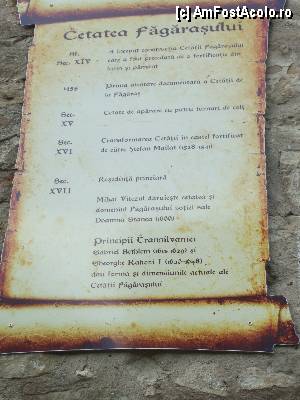 (c) AmFostAcolo.ro
Cetatea Făgărașului
Sf.
Sec. XIV
A început construcția Cetății Făgărașului
care a fost precedată de o fortificație din
lemn și pământ
1456
Prima atestare documentară a Cetății de
la Făgăraș
Sec.
XV
Cetate de apărare cu patru turnuri de colț
Sec.
XVI
Transformarea Cetății în castel fortificat
de către Ștefan Mailat (1528-1541)
Sec.
XVII
Reședință princiară
Mihai Viteazul dăruiește cetatea și
domeniul Făgărașului soției sale
Doamna Stanca (1600)
Principii Transilvaniei
Gabriel Bethlem (1613-1629) și
Gheorghe Rakoczi I (1630-1648)
dau forma și dimensiunile actuale ale
Cetății Făgărașului